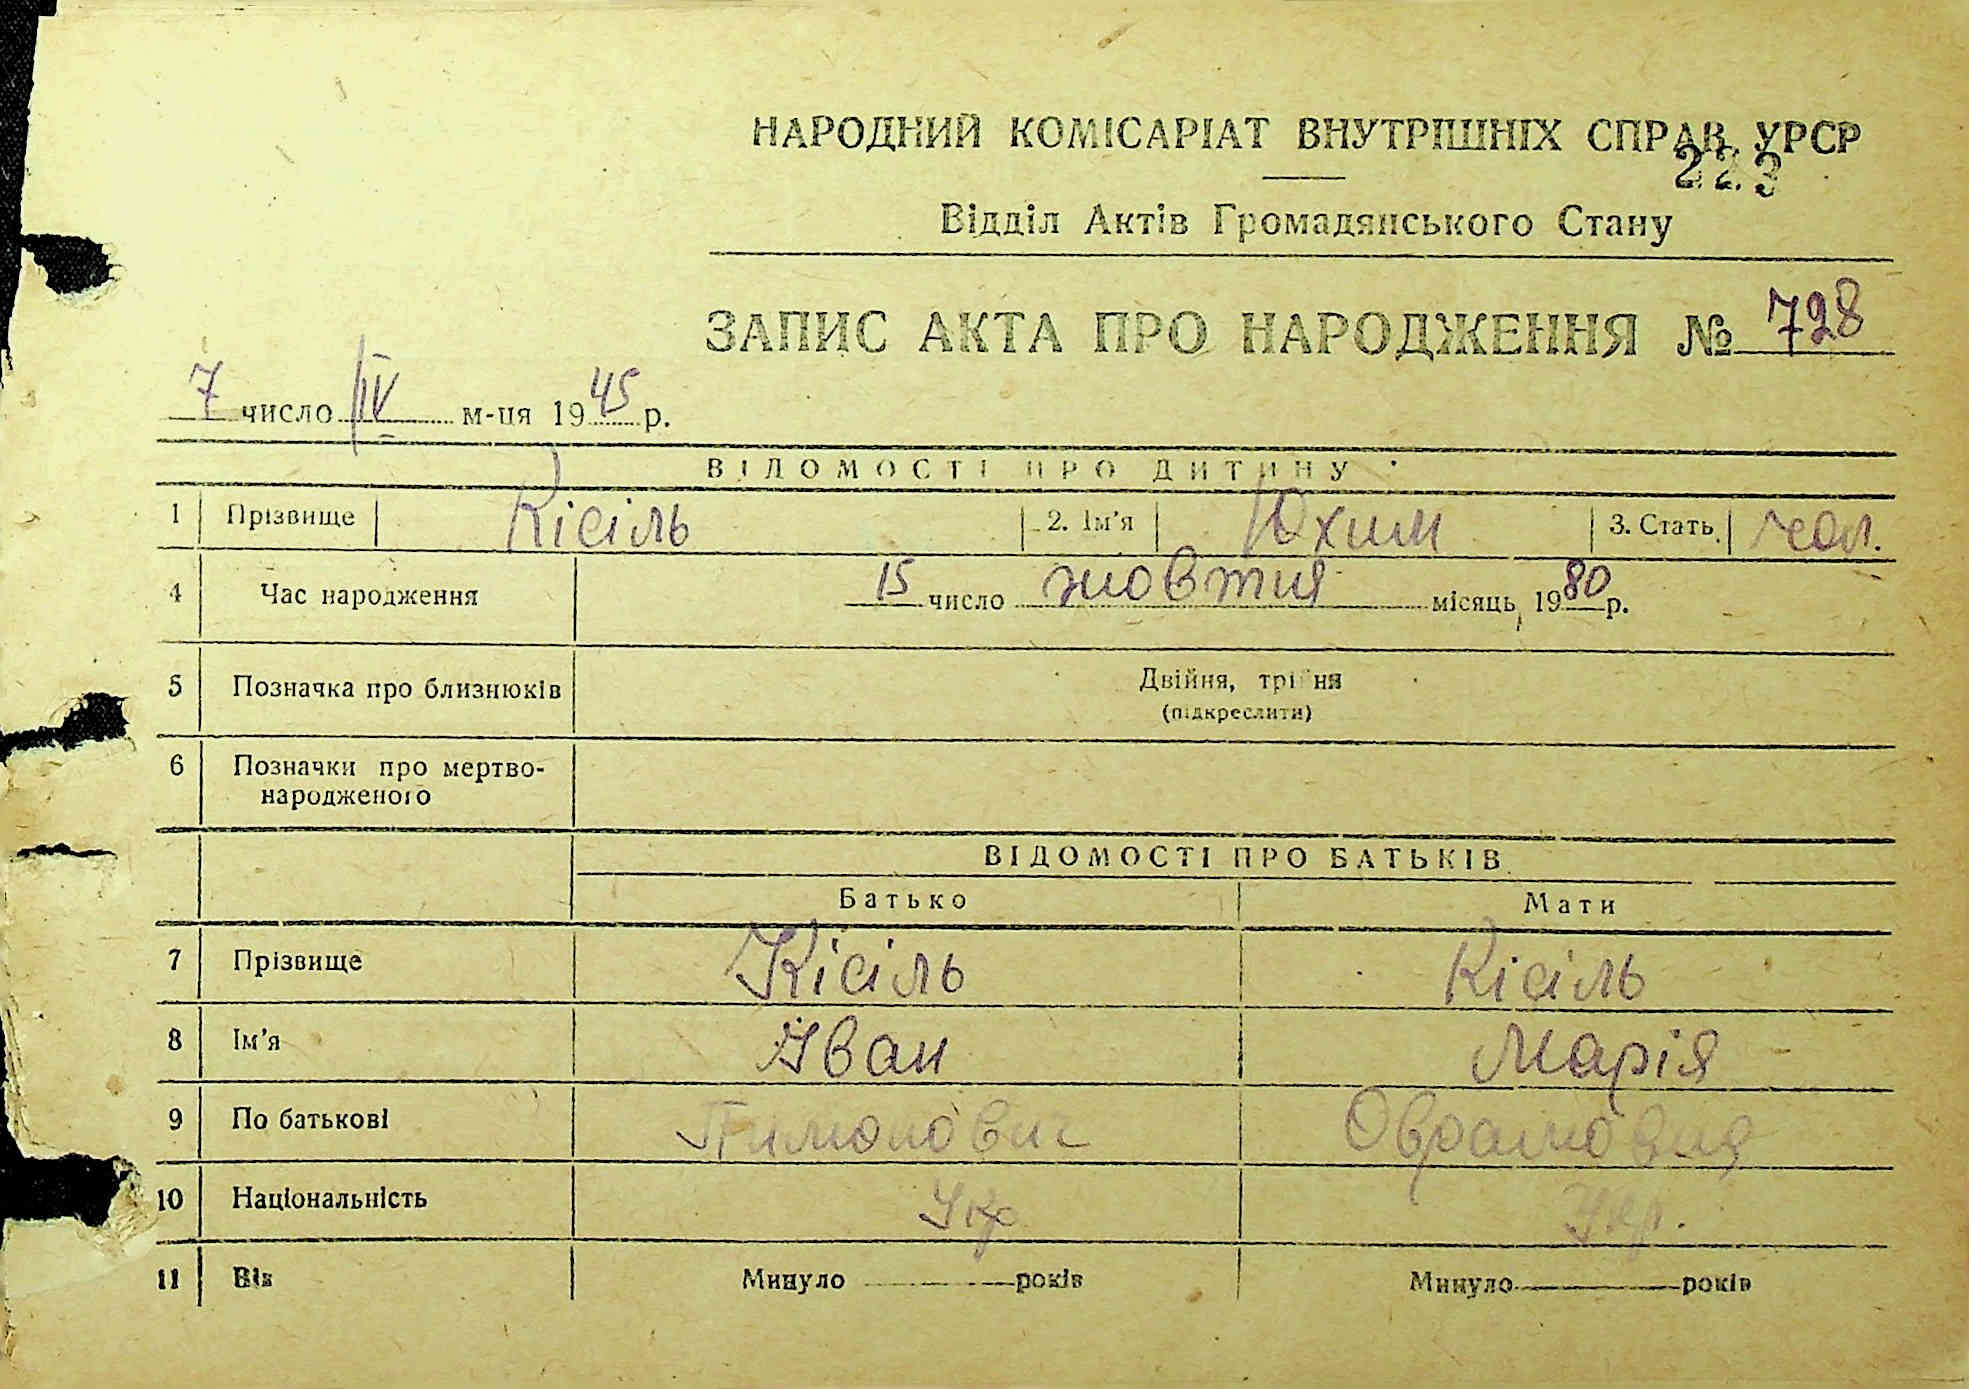 НАРОДНИЙ КОМІСАРІАТ ВНУТРІШНІХ СПРАВ УРСР
223
Відділ Актів Громадянського Стану
ЗАПИС АКТА ПРО НАРОДЖЕННЯ № 728
7 число IV м-ця 1945 р.
ВІДОМОСТІ ПРО ДИТИНУ
1 Прізвище Кісіль 2. Ім'я Юхим 3. Стать чол.
4 Час народження 15 число жовтня місяць 1980 р.
5 Позначка про близнюків Двійня, трійня
(підкреслити)
6 Позначки про мертво-
народженого
ВІДОМОСТІ ПРО БАТЬКІВ
Батько Мати
7 Прізвище Кісіль Кісіль
8 Ім'я Іван Марія
9 По батькові Пимонович Оврамовна
10 Національність Укр Укр.
11 Вік Минуло років Минуло років